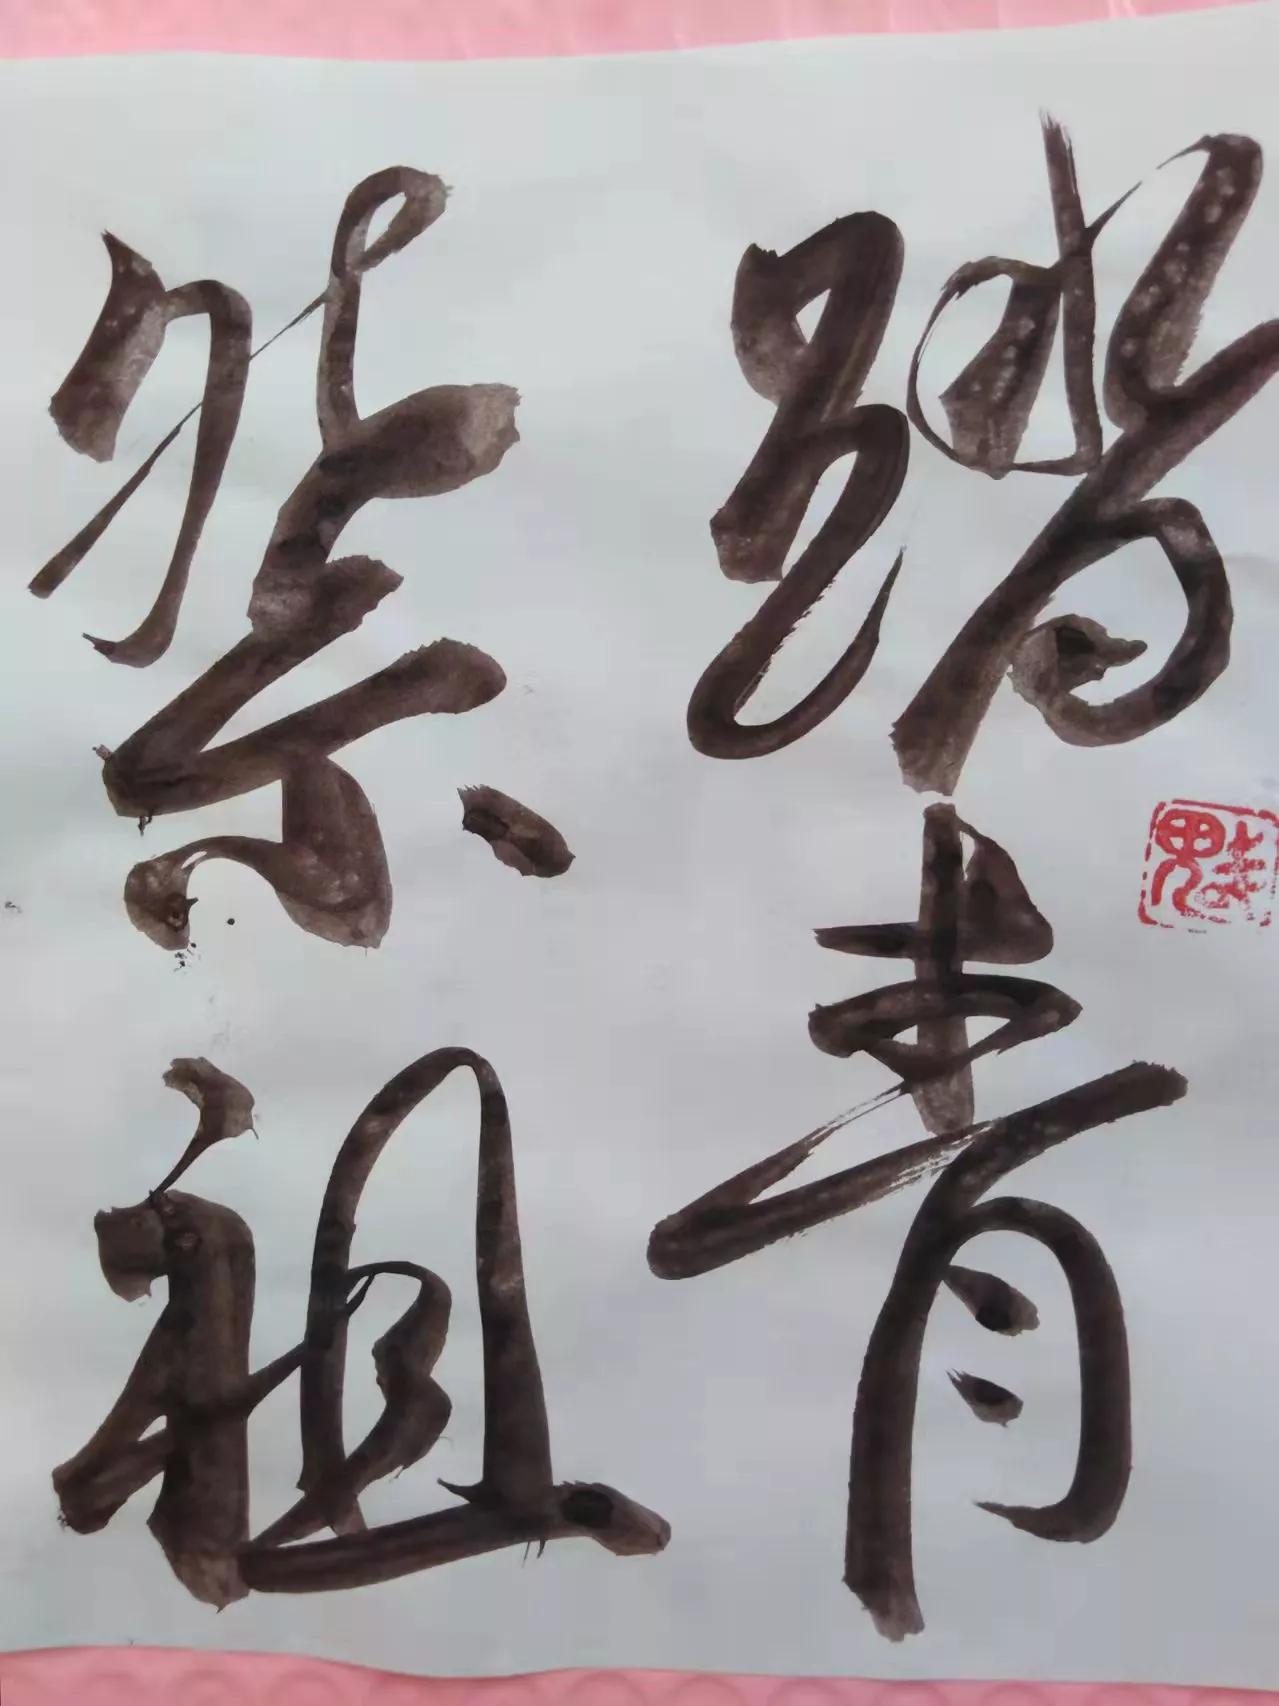 踏青
祭祖